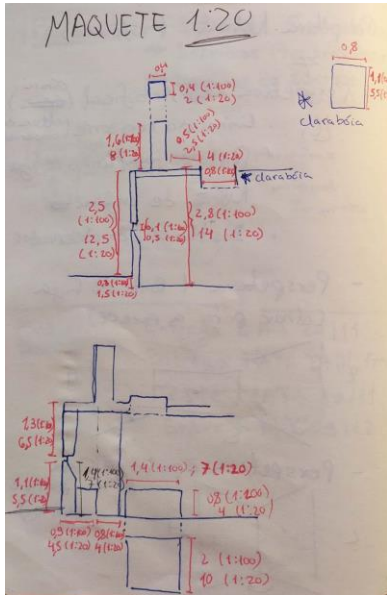 MAQUETE 1:20
0,4
0,4 (1:100)
2 (1:20)
0,8
1,1 (1:100)
5,5 (1:20)
* clarabóia
1,6 (1:100)
8 (1:20)
0,5 (1:100)
2,5 (1:20)
4 (1:20)
0,8 (1:100)
* clarabóia
2,5
(1:100)
12,5
(1:20)
0,1 (1:100)
0,5 (1:20)
2,8 (1:100)
14 (1:20)
0,3 (1:100)
1,5 (1:20)
1,3 (1:100)
6,5 (1:20)
1,1 (1:100)
5,5 (1:20)
1,4 (1:100)
7 (1:20)
1,4 (1:100) ; 7 (1:20)
0,8 (1:100)
4 (1:20)
0,9 (1:100)
4,5 (1:20)
0,8 (1:100)
4 (1:20)
2 (1:100)
10 (1:20)